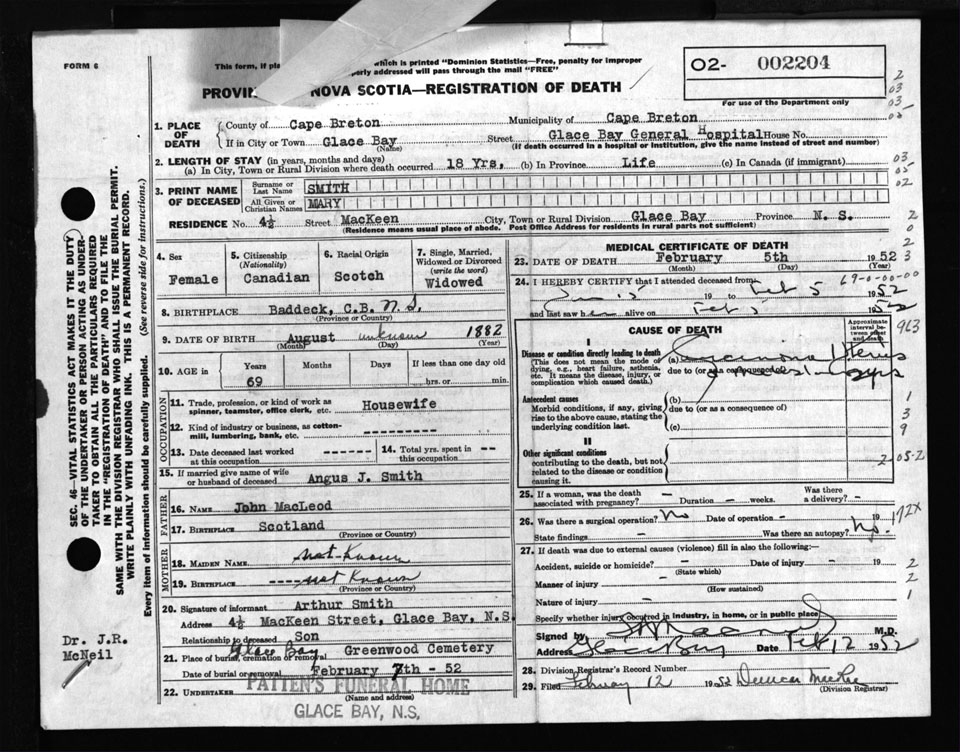 FORM 6
This form, if pla
which is printed "Dominion Statistics—Free, penalty for improper
perly addressed will pass through the mail "FREE"
PROVIN NOVA SCOTIA—REGISTRATION OF DEATH
O2- 002204
For use of the Department only
2
03
03
1. PLACE OF DEATH
County of Cape Breton Municipality of Cape Breton
If in City or Town Glace Bay Street Glace Bay General Hospital House No.
(Name) (If death occurred in a hospital or institution, give the name instead of street and number)
2. LENGTH OF STAY (in years, months and days)
(a) In City, Town or Rural Division where death occurred 18 Yrs, (b) In Province Life (c) In Canada (if immigrant)
03
05
02
3. PRINT NAME OF DECEASED
Surname or Last Name SMITH
All Given or Christian Names MARY
RESIDENCE No. 4½ Street MacKeen City, Town or Rural Division Glace Bay Province N. S.
(Residence means usual place of abode. Post Office Address for residents in rural parts not sufficient)
2
0
2
3
4. Sex
Female
5. Citizenship
(Nationality)
Canadian
6. Racial Origin
Scotch
7. Single, Married, Widowed or Divorced
(write the word)
Widowed
8. BIRTHPLACE Baddeck, C.B. N.S.
(Province or Country)
9. DATE OF BIRTH August unknown 1882
(Month) (Day) (Year)
10. AGE in Years Months Days If less than one day old
69 hrs. or min.
OCCUPATION
11. Trade, profession, or kind of work as spinner, teamster, office clerk, etc. Housewife
12. Kind of industry or business, as cotton-mill, lumbering, bank, etc. ---------
13. Date deceased last worked at this occupation ------
14. Total yrs. spent in this occupation --
15. If married give name of wife or husband of deceased Angus J. Smith
FATHER
16. Name John MacLeod
17. Birthplace Scotland
(Province or Country)
MOTHER
18. MAIDEN NAME Not Known
19. BIRTHPLACE ---- not Known
(Province or Country)
20. Signature of informant Arthur Smith
Address 4½ MacKeen Street, Glace Bay, N.S.
Relationship to deceased Son
21. Place of burial, cremation or removal Glace Bay Greenwood Cemetery
Date of burial or removal February 7th - 52
22. UNDERTAKER PATTEN'S FUNERAL HOME
(Name and Address)
GLACE BAY, N.S.
MEDICAL CERTIFICATE OF DEATH
23. DATE OF DEATH February 5th 1952
(Month) (Day) (Year)
24. I HEREBY CERTIFY that I attended deceased from
69-0-00-00
19 to Feb 5 1952
and last saw her alive on Feb 5 1952
CAUSE OF DEATH
Approximate interval between onset and death
963
I
Disease or condition directly leading to death
(This does not mean the mode of dying, e.g., heart failure, asthenia, etc. It means the disease, injury, or complication which caused death.)
(a) Carcinoma Uterus
due to (or as a consequence of)
Antecedent causes
Morbid conditions, if any, giving rise to the above cause, stating the underlying condition last.
(b)
due to (or as a consequence of)
(c)
1
3
9
II
Other significant conditions
contributing to the death, but not related to the disease or condition causing it.
2-05-2
25. If a woman, was the death associated with pregnancy? - Duration - weeks. Was there a delivery? -
26. Was there a surgical operation? No Date of operation - 19
State findings - Was there an autopsy? No.
172X
27. If death was due to external causes (violence) fill in also the following:—
Accident, suicide or homicide? - Date of injury - 19
(State which)
Manner of injury -
(How sustained)
Nature of injury -
Specify whether injury occurred in industry, in home, or in public place
2
2
1
Signed by M.D.
Address Glace Bay Date Feb 12 1952
28. Division Registrar's Record Number
29. Filed February 12 1952
(Division Registrar)
SEC. 46—VITAL STATISTICS ACT MAKES IT THE DUTY
OF THE UNDERTAKER OR PERSON ACTING AS UNDER-
TAKER TO OBTAIN ALL THE PARTICULARS REQUIRED
IN THE "REGISTRATION OF DEATH" AND TO FILE THE
SAME WITH THE DIVISION REGISTRAR WHO SHALL ISSUE THE BURIAL PERMIT.
WRITE PLAINLY WITH UNFADING INK. THIS IS A PERMANENT RECORD.
Every item of information should be carefully supplied. (See reverse side for instructions.)
Dr. J.R.
McNeil